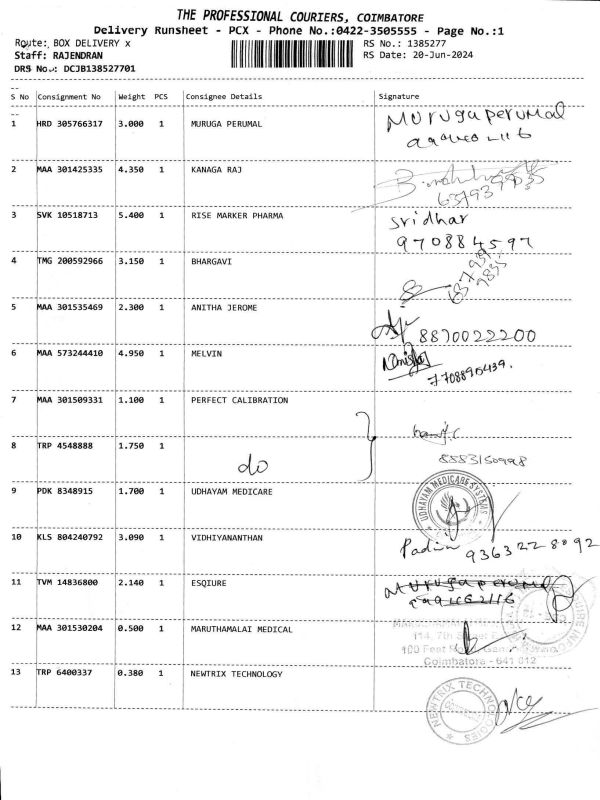 THE PROFESSIONAL COURIERS, COIMBATORE
Delivery Runsheet - PCX - Phone No.:0422-3505555 - Page No.:1
Route: BOX DELIVERY x RS No.: 1385277
Staff: RAJENDRAN RS Date: 20-Jun-2024
DRS No.: DCJB138527701
--
S No Consignment No Weight PCS Consignee Details Signature
--
1 HRD 305766317 3.000 1 MURUGA PERUMAL Muruga perumal
2 MAA 301425335 4.350 1 KANAGA RAJ
3 SVK 10518713 5.400 1 RISE MARKER PHARMA Sridhar
970884597
4 TMG 200592966 3.150 1 BHARGAVI
5 MAA 301535469 2.300 1 ANITHA JEROME
8870022200
6 MAA 573244410 4.950 1 MELVIN
7708890439.
7 MAA 301509331 1.100 1 PERFECT CALIBRATION
8 TRP 4548888 1.750 1 do
8883150998
9 PDK 8348915 1.700 1 UDHAYAM MEDICARE UDHAYAM MEDICARE SYSTEMS
10 KLS 804240792 3.090 1 VIDHIYANANTHAN
9363228892
11 TVM 14836800 2.140 1 ESQIURE Muruga perumal
12 MAA 301530204 0.500 1 MARUTHAMALAI MEDICAL
114, 7th Street
100 Feet
Coimbatore - 641 012
13 TRP 6400337 0.380 1 NEWTRIX TECHNOLOGY
NEWTRIX TECHNOLOGIES